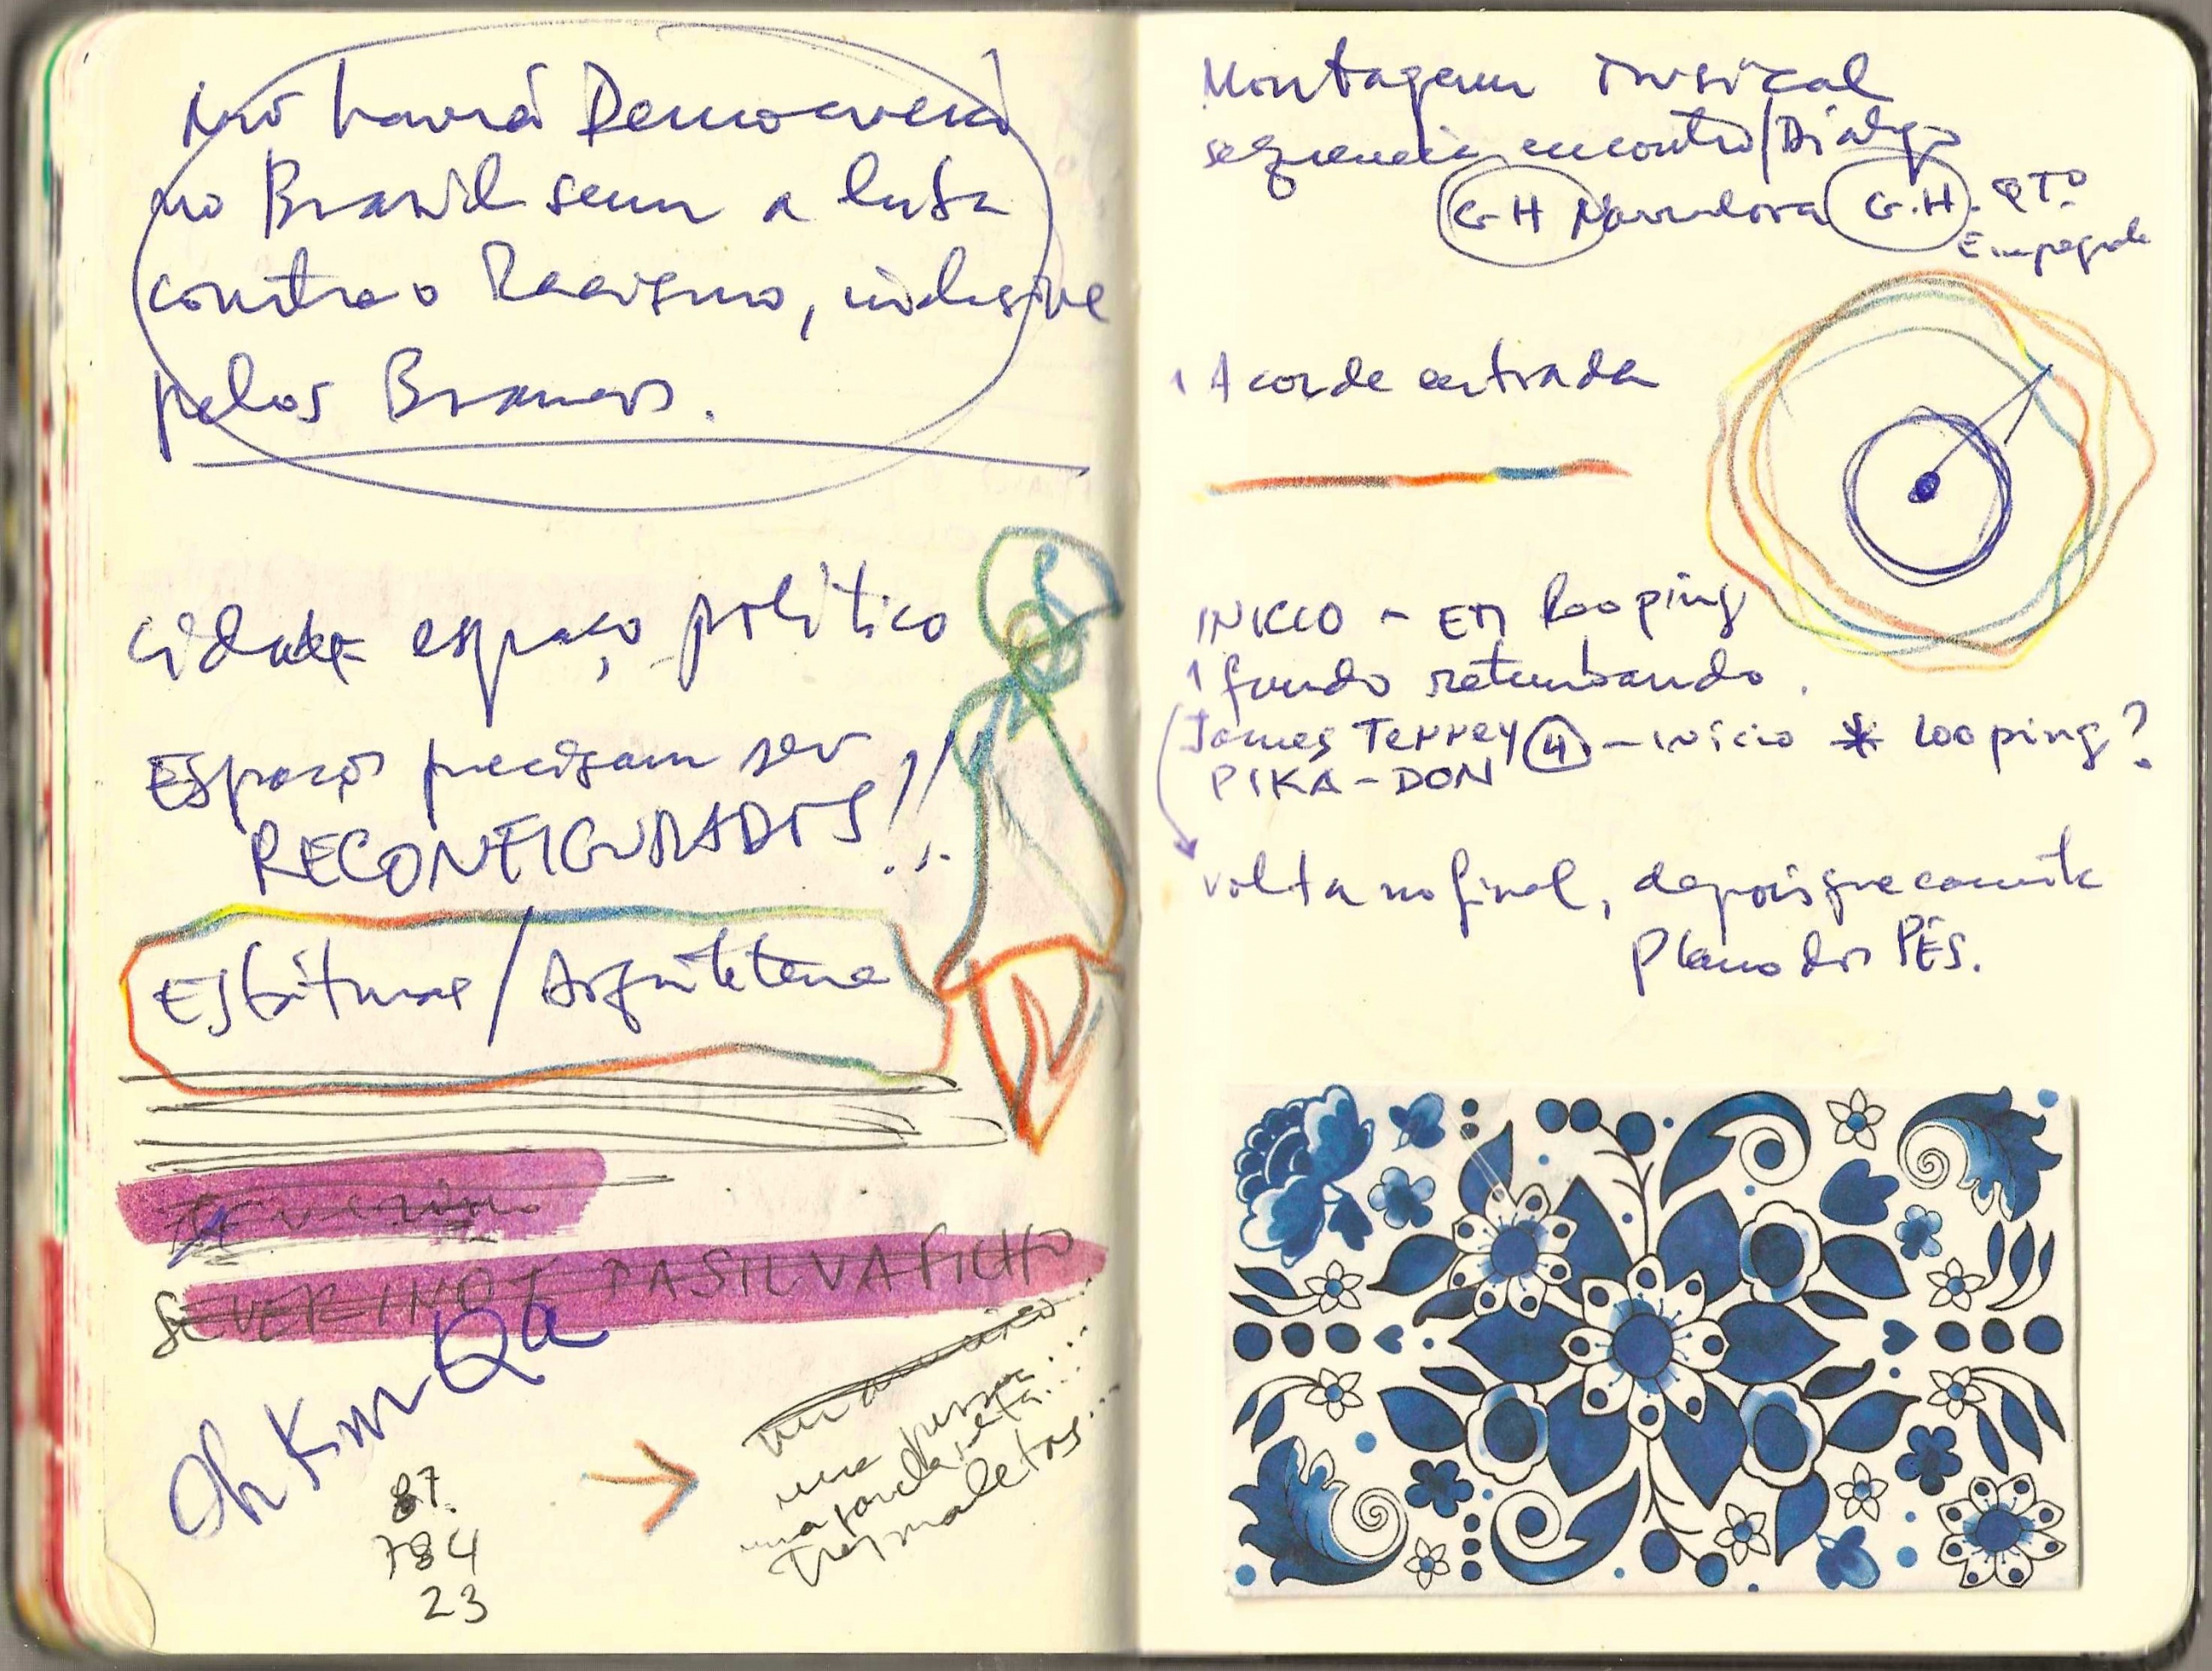 Não haverá Democracia
no Brasil sem a luta
contra o Racismo, inclusive
pelos Brancos.
Cidade espaço político
Espaços precisam ser
RECONFIGURADOS!!
/ Arquitetura
SEVERINO DA SILVA FILHO
87.
784
23
uma
três maletas...
Montagem musical
sequencia encontro/Dialogo
G-H Narradora G.H. QTO
Empregada
1 Acorde entrada
INICIO - EM looping
1 fundo retumbando.
James TENNEY 4 - inicio * looping?
PIKA-DON
volta no final, depois que comete
Plano dos PÉS.